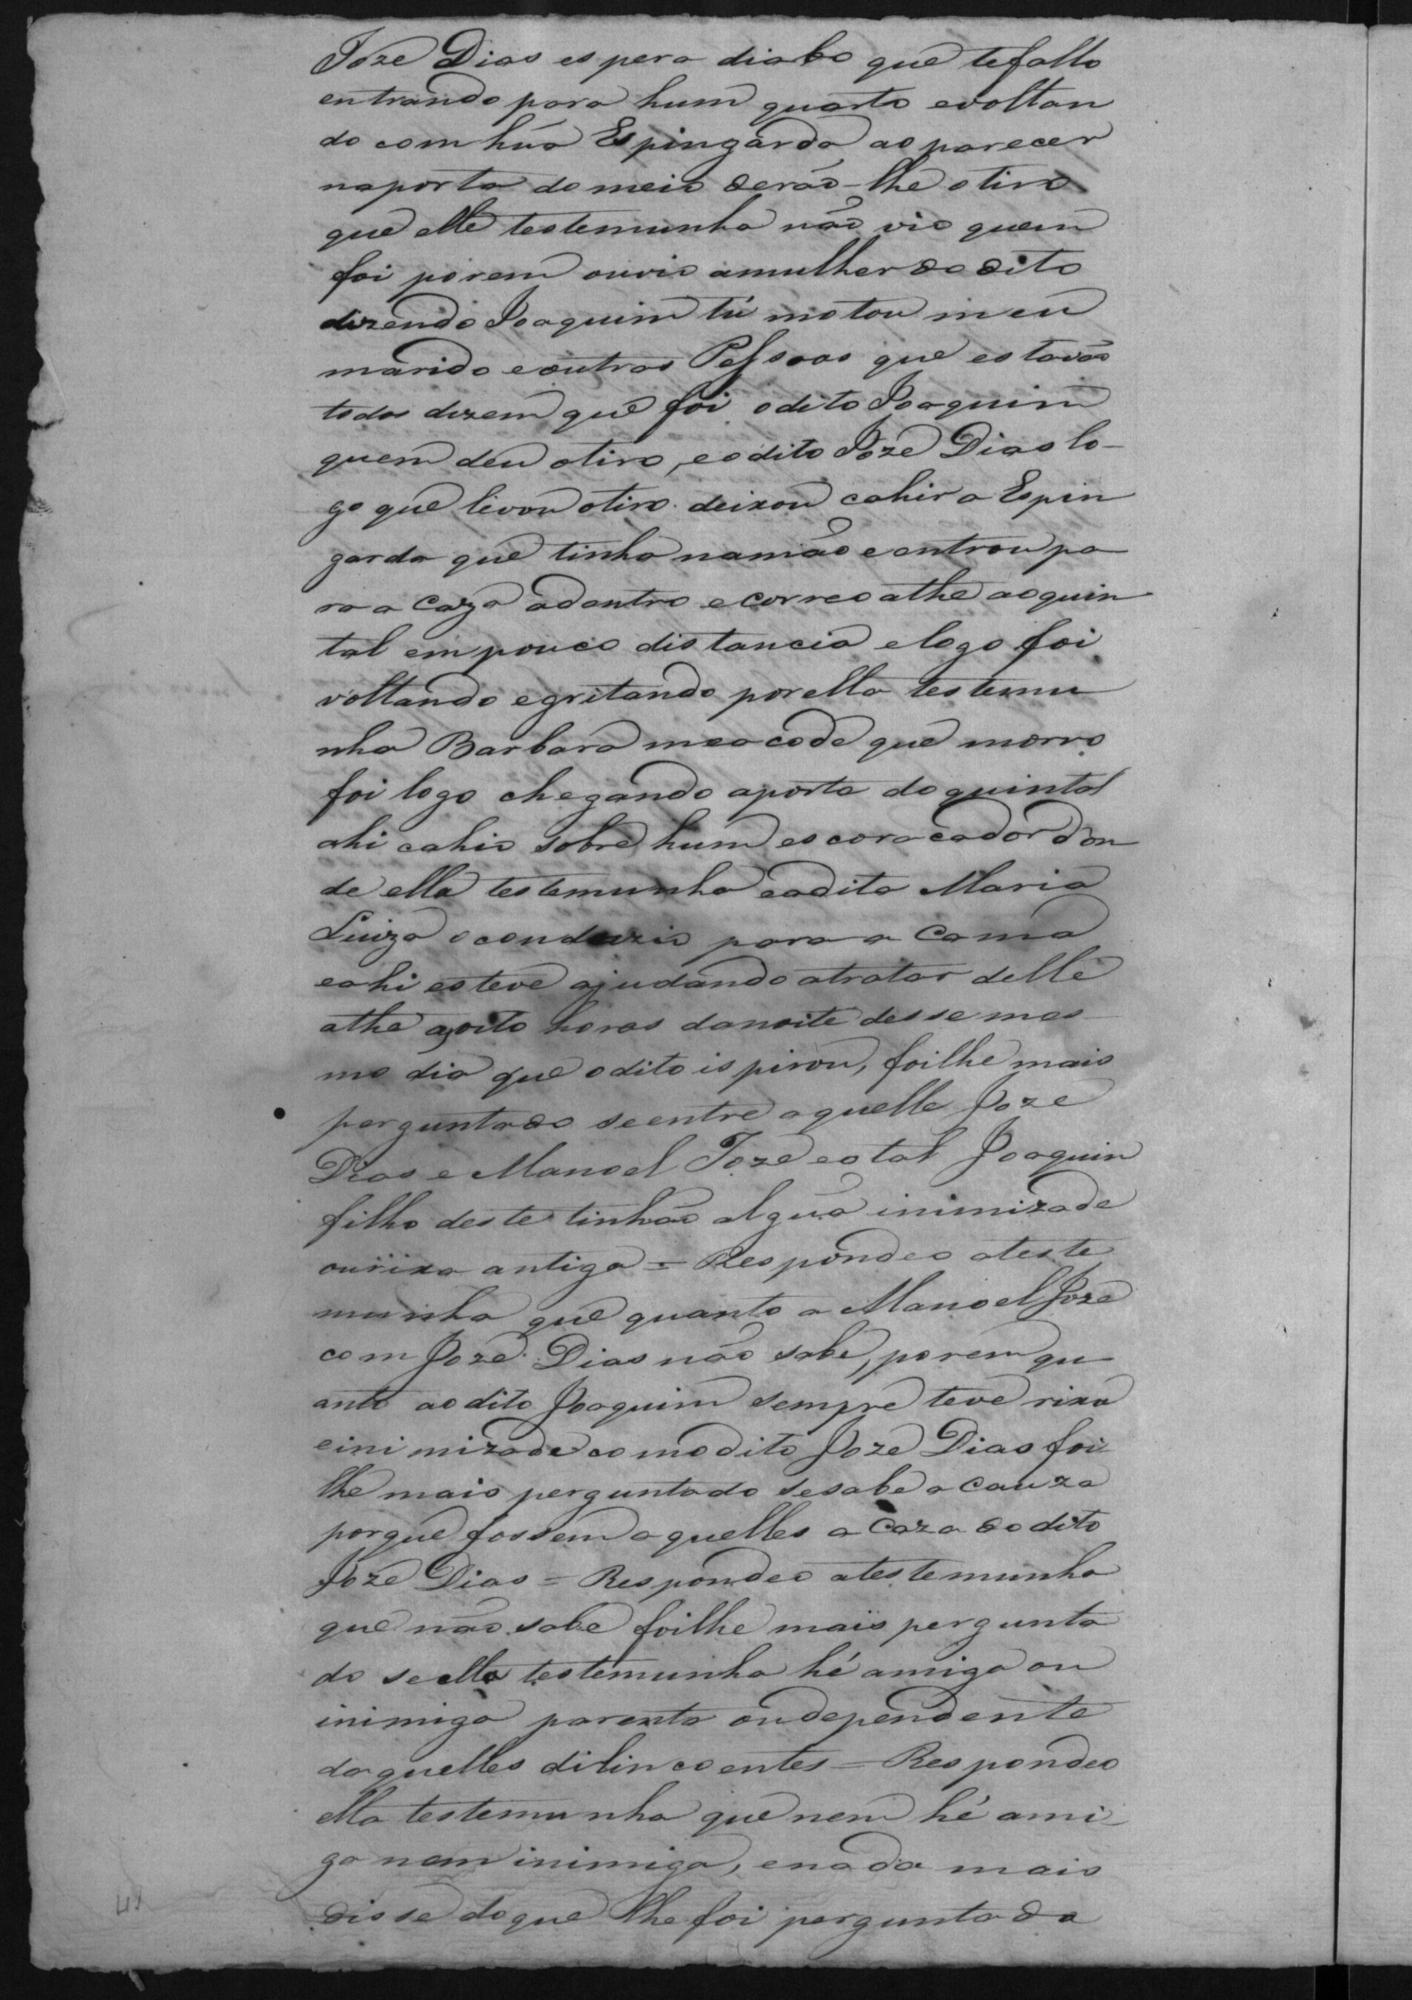 Joze Dias espera diabo que te fallo
entrando para hum quarto e voltan
do com húa Espingarda ao parecer
na porta do meio derão-lhe o tiro
que elle testemunha não vio quem
foi porem ouvio a mulher do dito
dizendo Joaquim tú matou meu
marido e outras Pessoas que estavão
todos dizem que foi o dito Joaquim
quem deu o tiro, e o dito Joze Dias lo-
go que levou o tiro deixou cahir a Espin
garda que tinha na mão e entrou pa
ra a caza adentro e correo athe ao quin
tal em pouca distancia e logo foi
voltando e gritando por ella testemu
nha Barbara me acode que morro
foi logo chegando a porta do quintal
ahi cahio sobre hum escoraçador don
de ella testemunha e a dita Maria
Luiza o conduzio para a cama
e ahi esteve ajudando a tratar delle
athe as oito horas da noite desse mes-
mo dia que o dito ispirou, foi lhe mais
perguntado se entre aquelle Joze
Dias e Manoel Joze e o tal Joaquim
filho deste tinhão algúa inimizade
ou rixa antiga = Respondeo a teste
munha que quanto a Manoel Joze
com Joze Dias não sabe, porem qu
anto ao dito Joaquim sempre teve rixa
e inimizade com o dito Joze Dias foi
lhe mais perguntado se sabe a cauza
porque fossem aquelles a caza do dito
Joze Dias = Respondeo a testemunha
que não sabe foi lhe mais pergunta
do se ella testemunha hé amiga ou
inimiga parenta ou dependente
daquelles dilincoentes = Respondeo
ella testemunha que nem hé ami-
ga nem inimiga, e nada mais
disse do que lhe foi perguntada